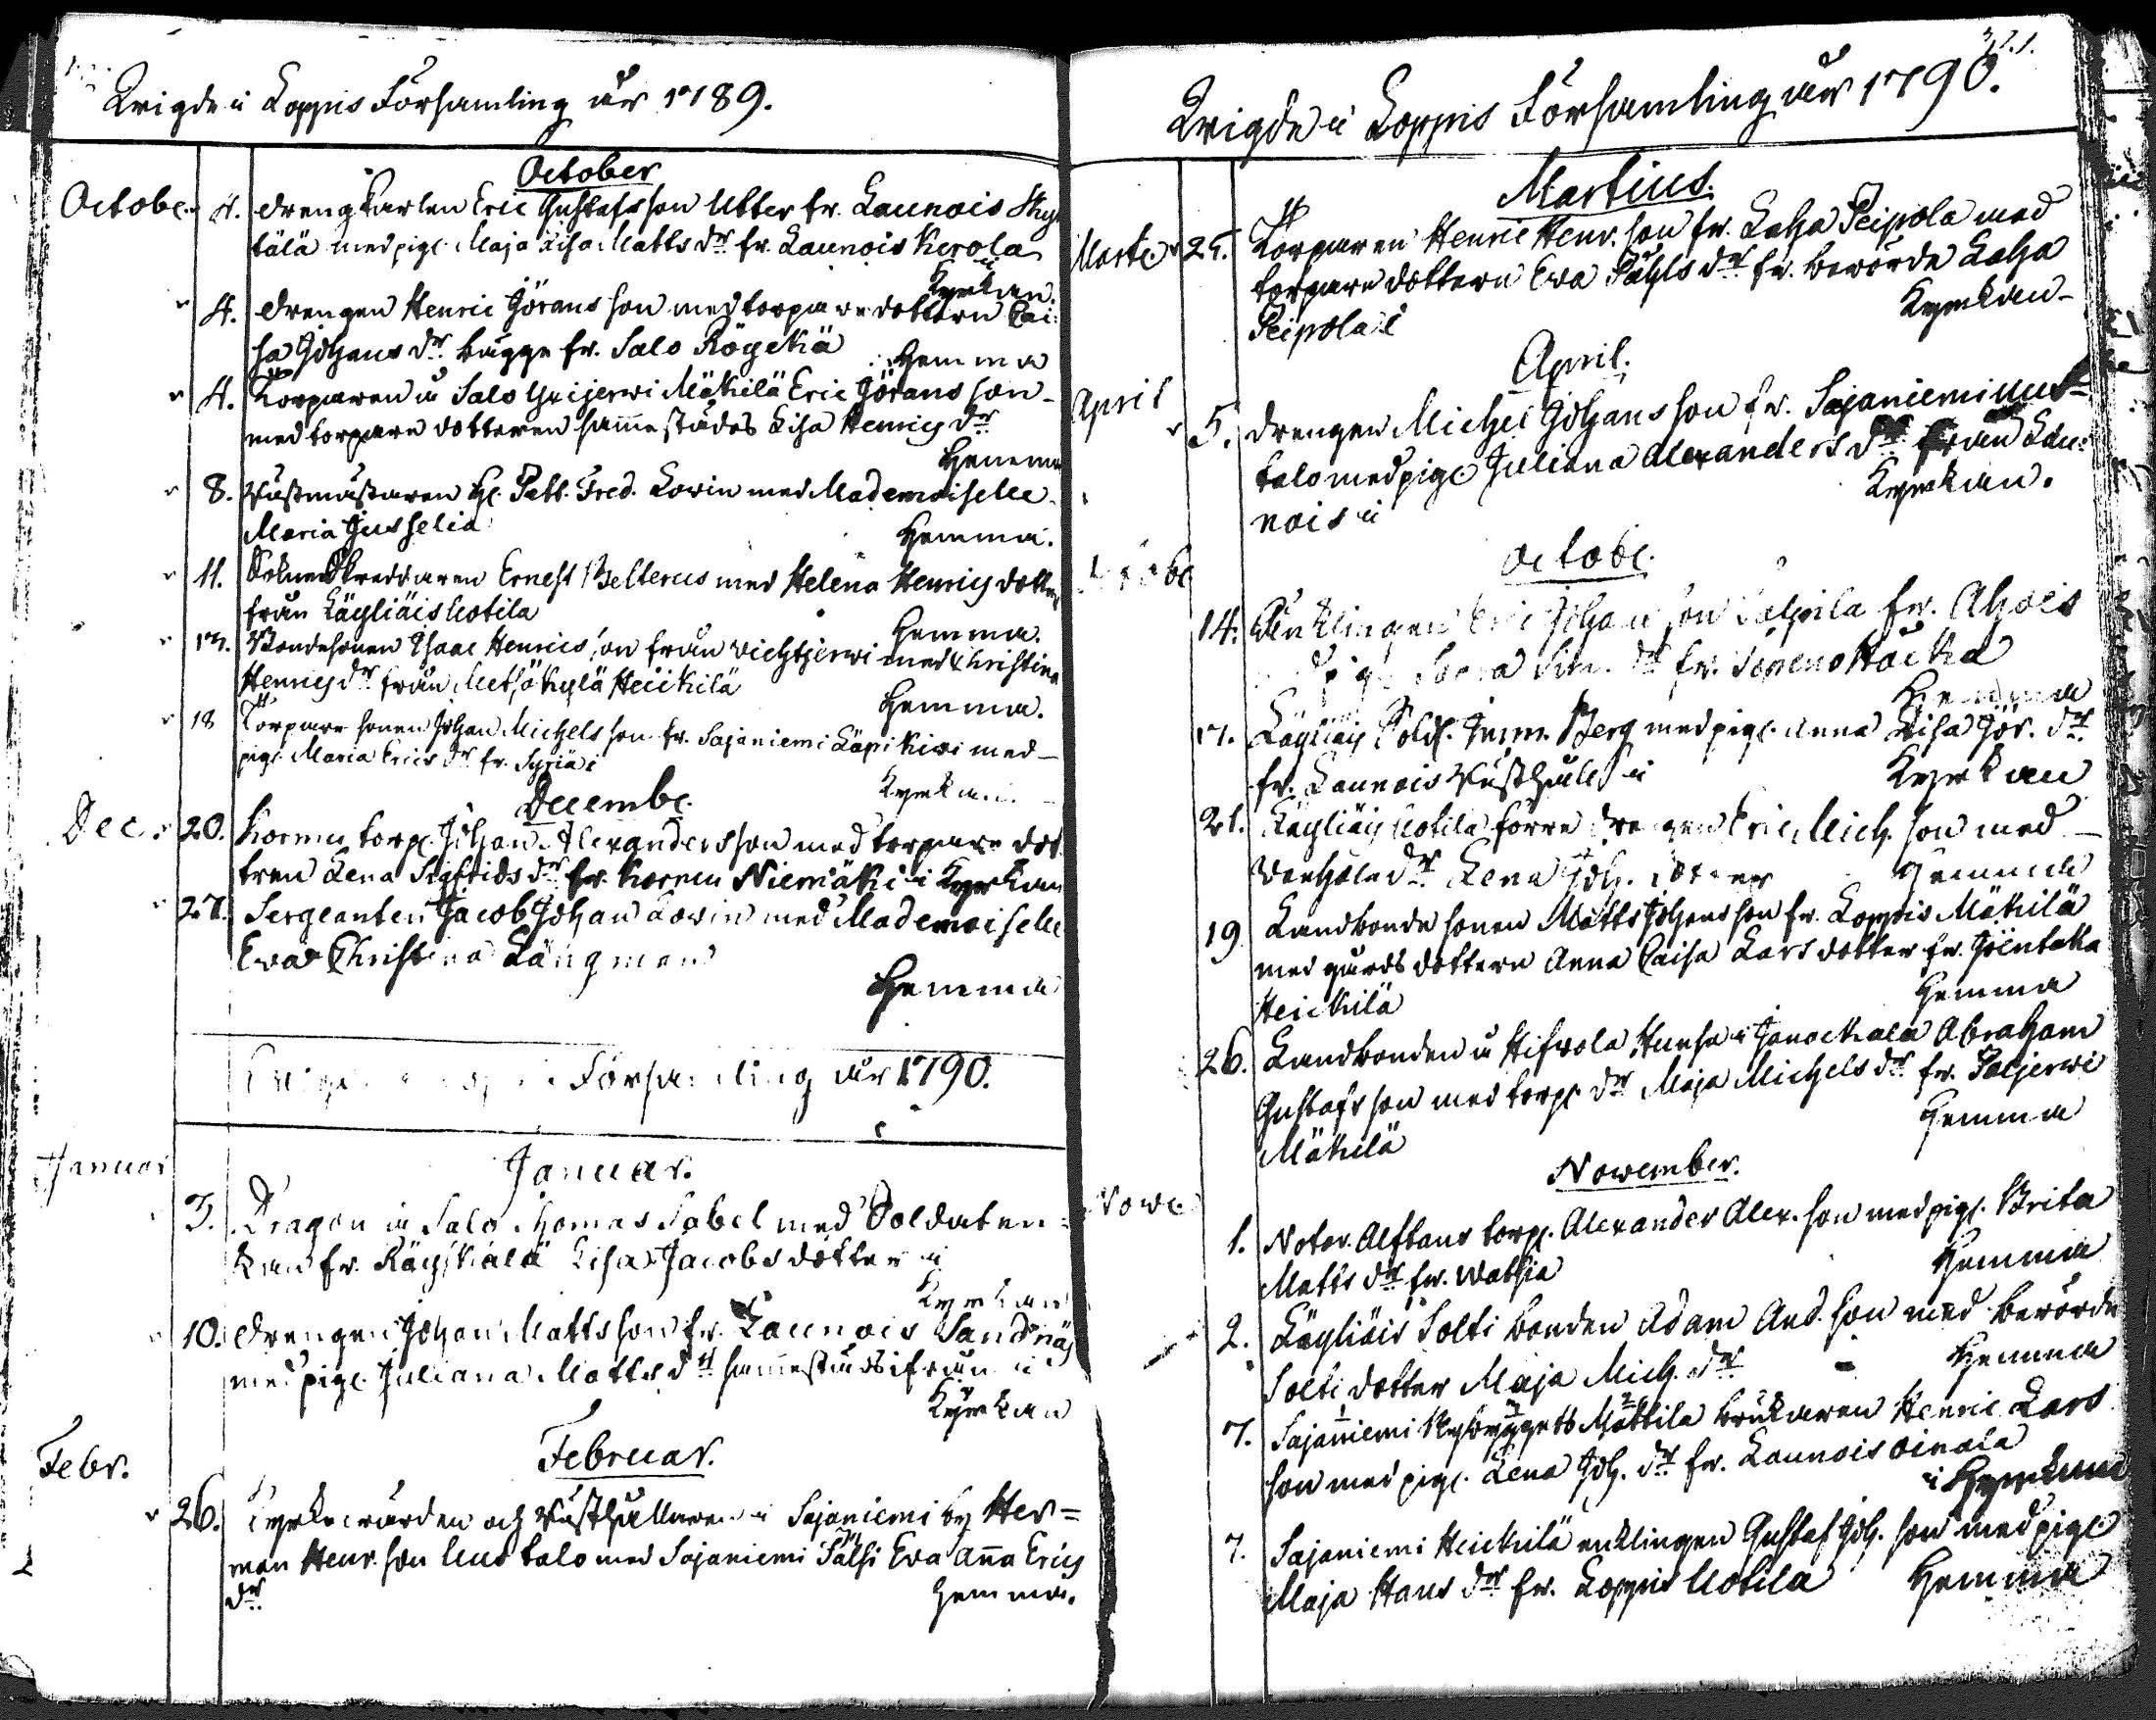 Wigde i Loppis Församling år 1789.
October
Octobr. 4. drengkarlen Eric Gustafsson Utter fr. Launois Sky
tälä med pig. Maja Lisa Matts dr fr. Launois Kerola
i Kyrkan.
4. drengen Henric Görans son med torpare dottern Cai
sa Johans dr. Bagge fr. Salo Röyskä
Hemma
4. Torparen i Salo Mäkilä Eric Görans son
med torpare dotteren sammestädes Lisa Henrics dr
Hemma
8. Rustmästaren H. Fred. Lovin med Mademoiselle
Maria Juselia
Hemma.
11. Sokneskreddaren Ernest Belterus med Helena Henrics dotter
från Läyliäis Uotila
Hemma.
Bondesonen Isaac Henrics son från Vichtjerwi med Christina
Henrics dr från Metsäkylä Heickilä
Hemma.
18 Torpare sonen Johan Michels son fr. Sajaniemi Läpikivi med
pig. Maria Erics dr fr. Syriä i
Kyrkan.
Decembr.
Dec. 20. Kormu torp. Johan Alexanders son med torpare dot
tren Lena Sigfrids dr fr. Kormu Niemäki i Kyrkan
27. Sergeanten Jacob Johan Lovin med Mademoiselle
Eva Christina Långman
Hemma
Församling år 1790.
Januar
Januar.
3. Dragon i Salo Thomas Sabel med Soldaten
kan fr. Räyskälä Lisa Jacobs dotter i
Kyrkan
10. drengen Johan Matts son fr. Launois Sandnäs
med pig. Juliana Matts dr sammestäds ifrån i
Kyrkan
Febr.
Februar.
26. Kyrkovärden och Rusthållaren i Sajaniemi by Her=
man Henr. son Uus talo med Sajaniemi Pälsi Eva Anna Erics
dr.
Hemma.
321.
Wigde i Loppis Församling år 1790.
Martius.
Marti 25. Torparen Henric Henr. son fr. Laha Peipola med
torpare dottern Eva Påhls dr fr. berörde Laha
Peipola i
Kyrkan
April.
April 5. drengen Michel Johans son fr. Sajaniemi uus=
talo med pig. Juliana Alexanders dr från Lau=
nois i
Kyrkan.
Octobr.
14. Änklingen Eric Johans son fr. Ahois
pig. dr fr.
Hemma
17. Läyliäis Sold. Imm. Berg med pig. Anna Lisa Gör. dr
fr. Launois Rusthåll i
Kyrkan
21. Läyliäis Uotila förre drengen Eric Mich. son med
dr Lena Joh. dotter
Hemma
19 Landbonde sonen Matts Johans son fr. Loppis Mäkilä
med gårds dottern Anna Caisa Lars dotter fr. Joentaka
Heickilä
Hemma
26. Landbonden i Hifvola Hunsa i Janackala Abraham
Gustafs son med torp. dr Maja Michels dr fr.
Mäkilä
Hemma
November.
Nove
1. Notar. Alftans torp. Alexander Alex. son med pig. Brita
Matts dr fr. Watsia
Hemma
2. Läyliäis Solti bonden Adam And. son med berörde
Solti dotter Maja Mich. dr
Hemma
7. Sajaniemi Mattila brukaren Henric Lars
son med pig. Lena Joh. dr fr. Launois Oinala
i Kyrkan
7. Sajaniemi Heickilä enklingen Gustaf Joh. son med pig.
Maja Hans dr fr. Loppis Uotila
Hemma